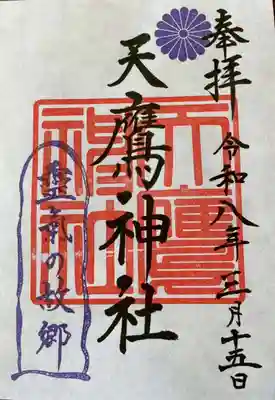 奉拝
令和八年三月十五日
天鷹神社
天鷹神社
靈氣の故郷